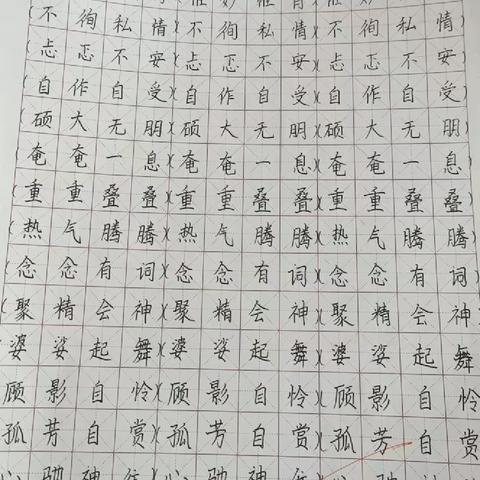 (不徇私情)(不徇私情)(不徇私情)
(忐忑不安)(忐忑不安)(忐忑不安)
(自作自受)(自作自受)(自作自受)
(硕大无朋)(硕大无朋)(硕大无朋)
(奄奄一息)(奄奄一息)(奄奄一息)
(重重叠叠)(重重叠叠)(重重叠叠)
(热气腾腾)(热气腾腾)(热气腾腾)
(念念有词)(念念有词)(念念有词)
(聚精会神)(聚精会神)(聚精会神
婆娑起舞)(婆娑起舞)(婆娑起舞
顾影自怜)(顾影自怜)(顾影自怜
孤芳自赏)(孤芳自赏)(孤芳自赏